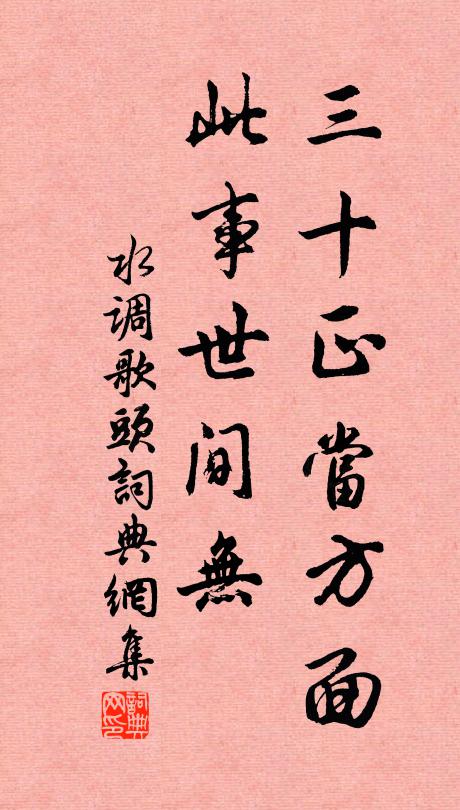 三十正當方面
此事世間無
水調歌頭詞典網集
詞典網印